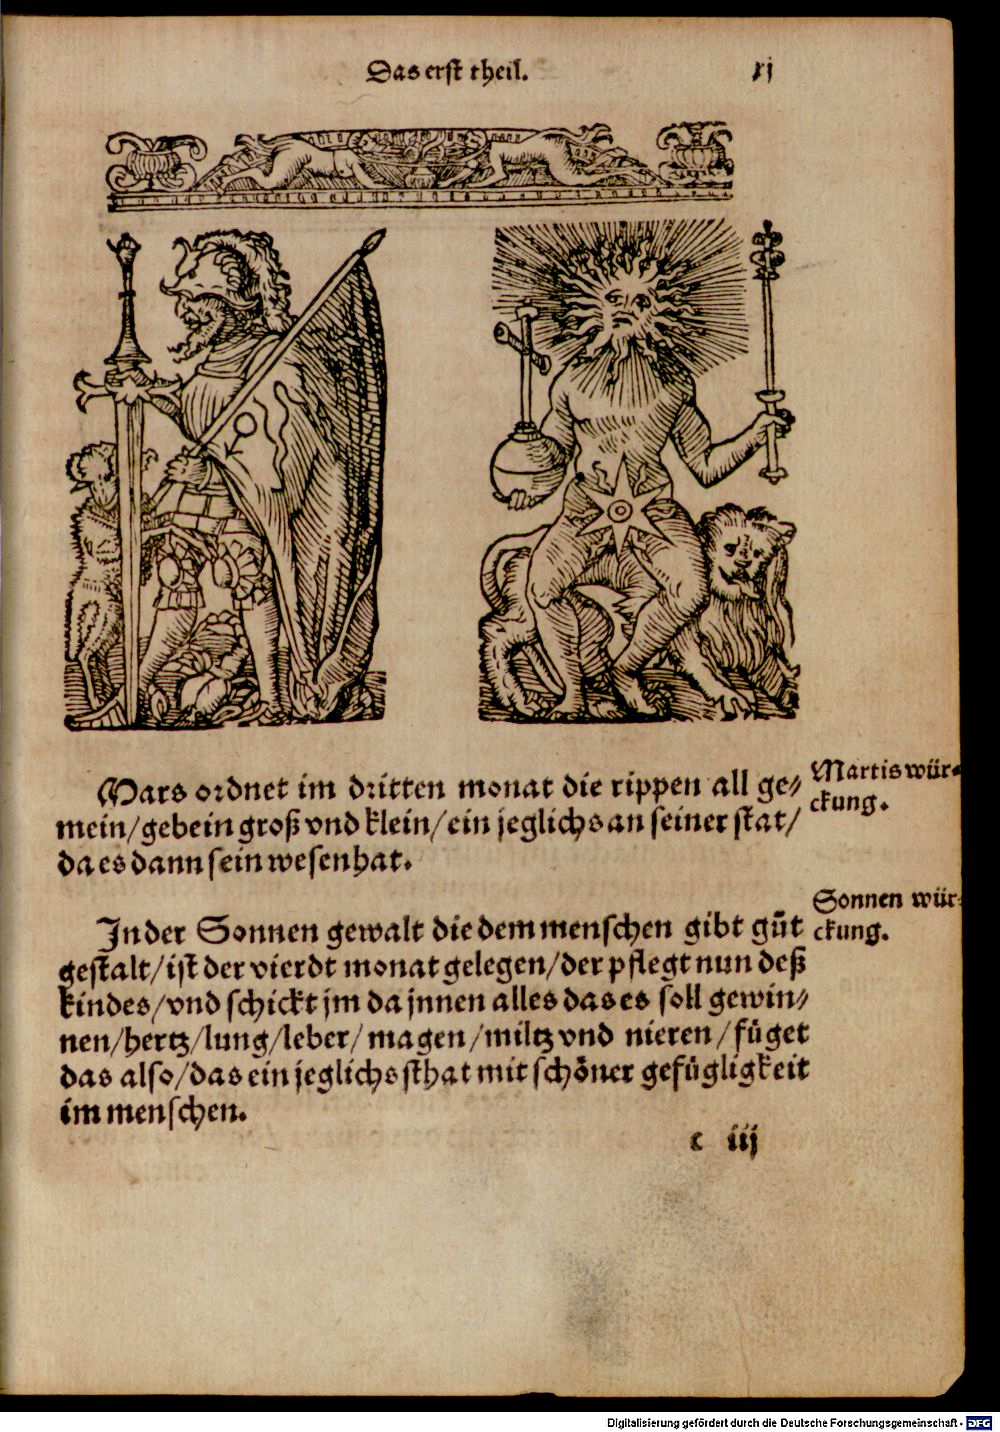 Das erst theil.
xj
Mars ordnet im dritten monat die rippen all ge⸗
mein/gebein groß vnd klein/ein jeglichs an seiner stat/
da es dann sein wesen hat.
Martis wür⸗
ckung.
In der Sonnen gewalt die dem menschen gibt gůt
gestalt/ist der vierdt monat gelegen/der pflegt nun deß
kindes/vnd schickt jm da jnnen alles das es soll gewin⸗
nen/hertz/lung/leber/magen/miltz vnd nieren/füget
das also/das ein jeglichs sthat mit schöner gefügligkeit
im menschen.
Sonnen wür⸗
ckung.
c iij
Digitalisierung gefördert durch die Deutsche Forschungsgemeinschaft - DFG